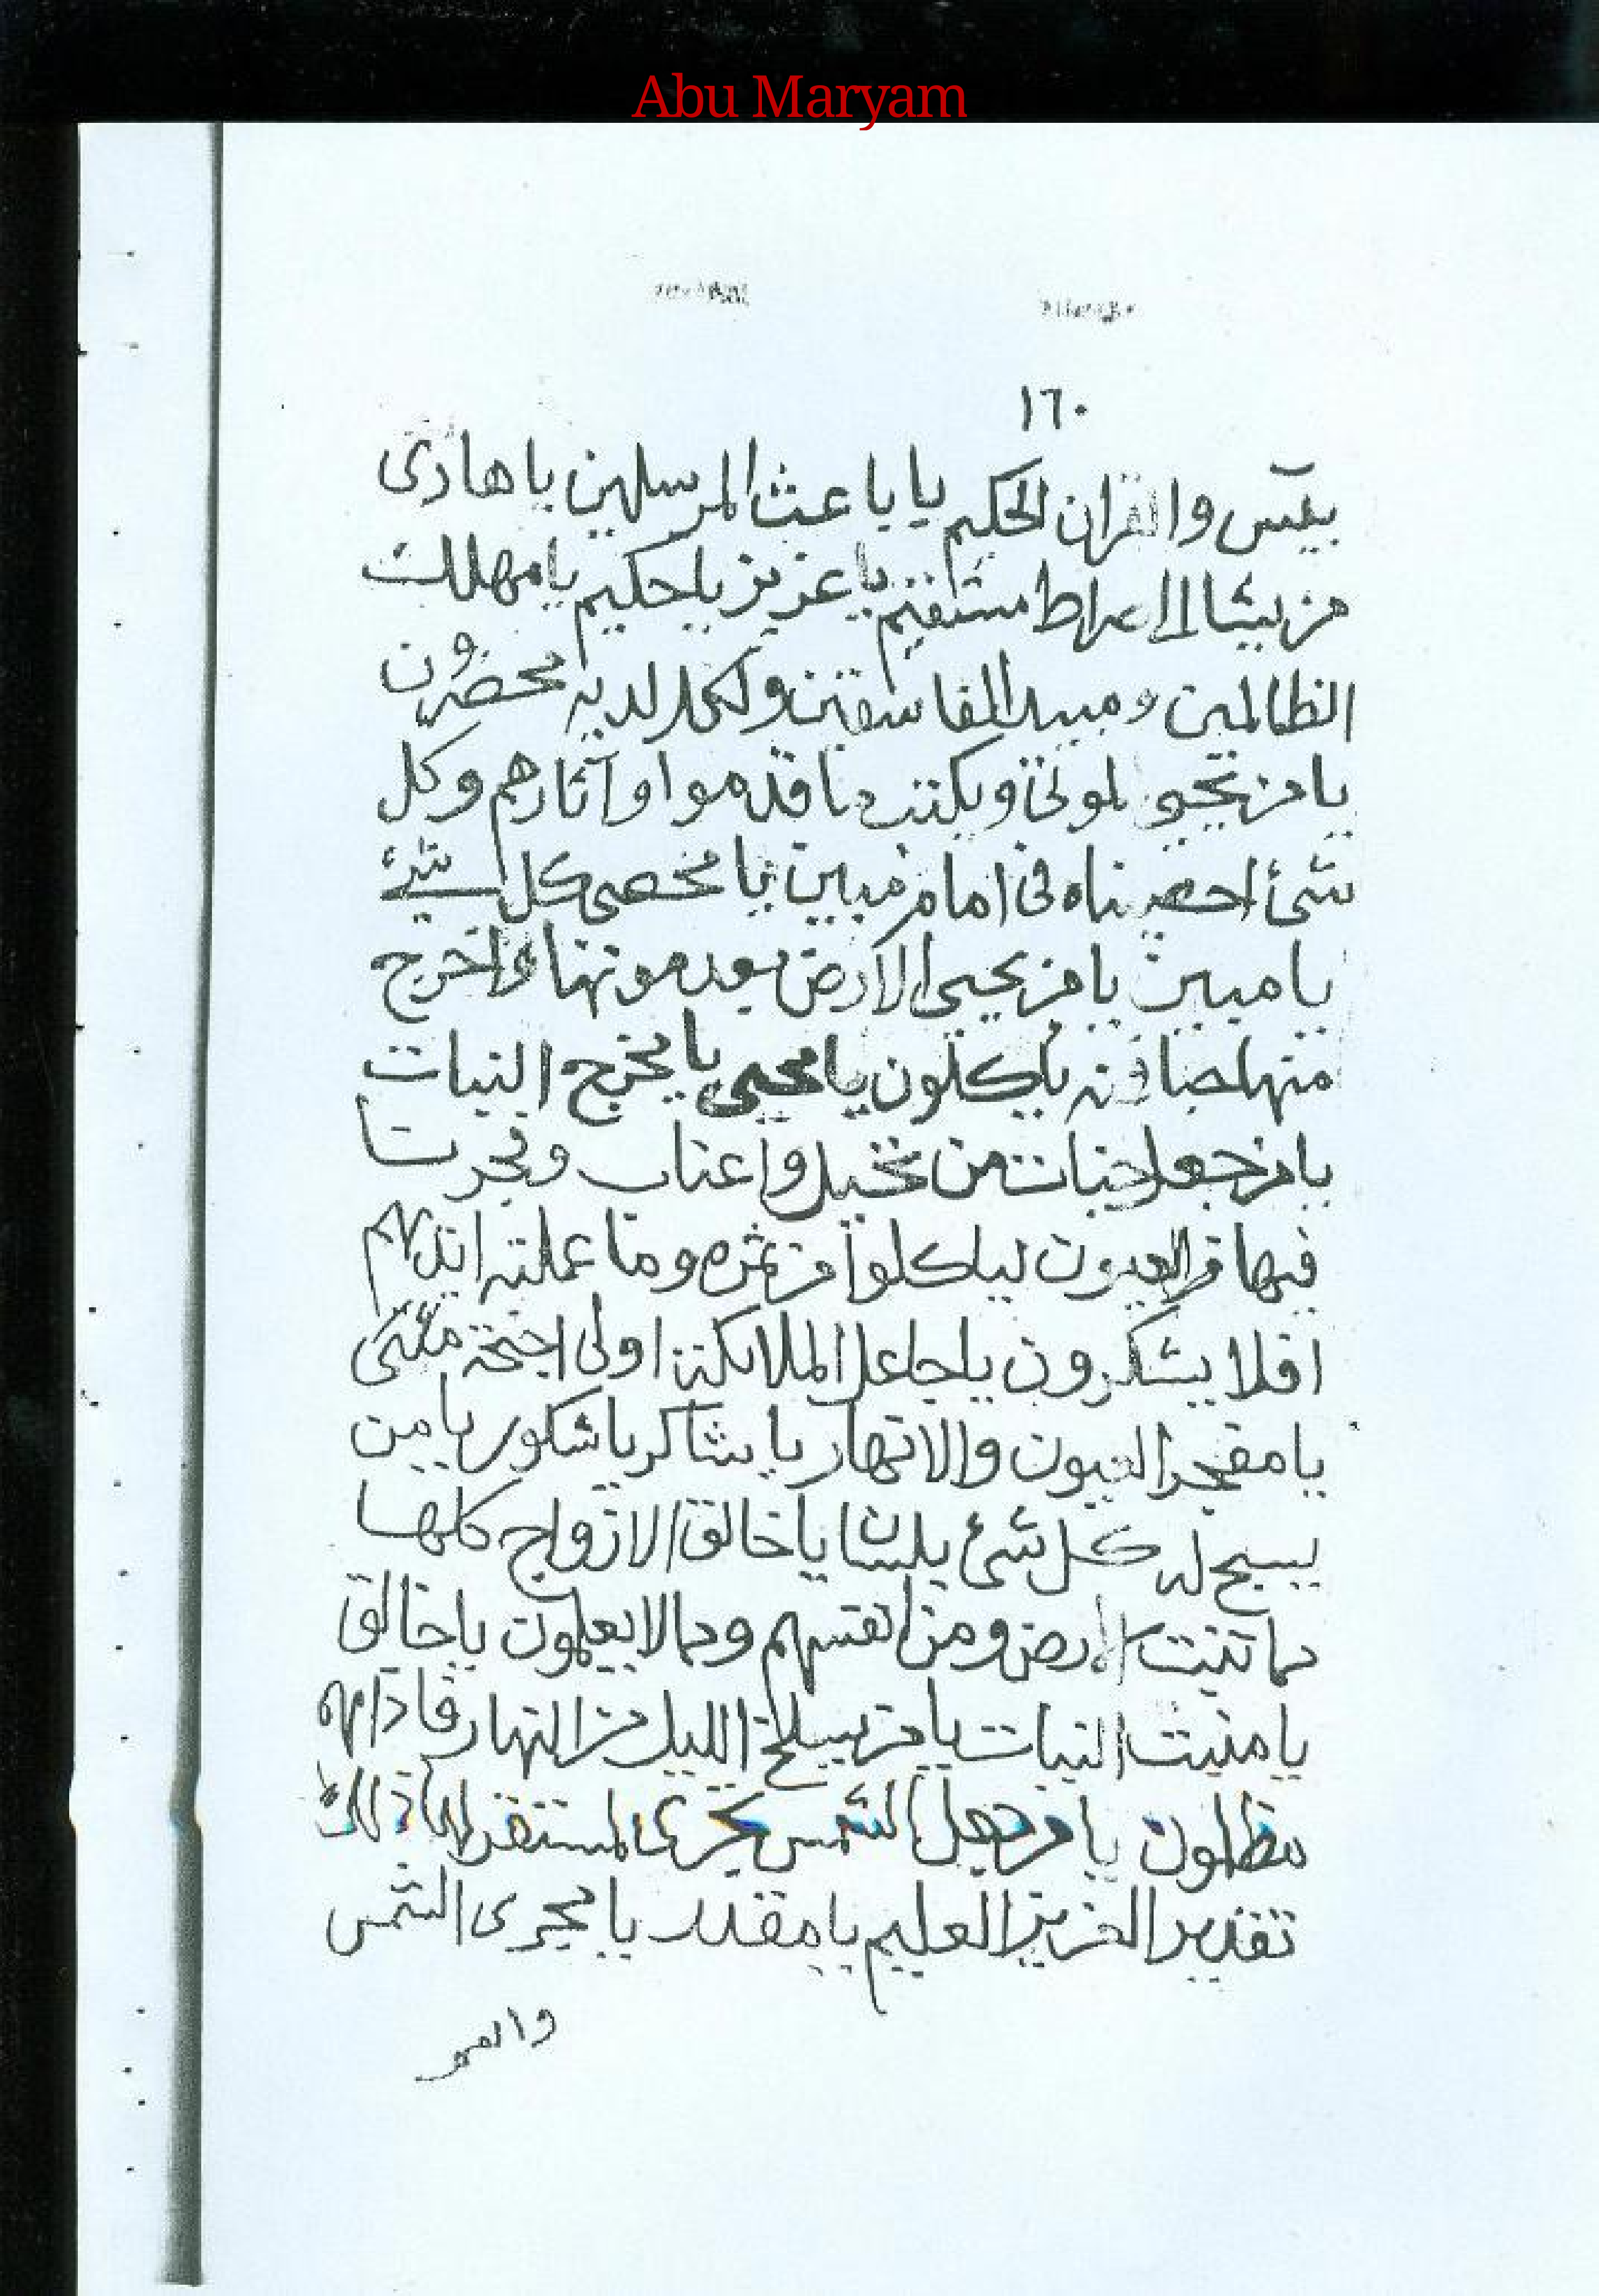 Abu Maryam
١٦٠
بيس والقران الحكيم يا باعث المرسلين يا هادى
من يشا الى صراط مستقيم يا عزيز يا حكيم يا مهلك
الظالمين و مبيد الفاسقين وكل لديه محضرون
يا من يحيى لموتى ويكتب ما قدموا وآثارهم وكل
شئ احصيناه فى امام مبين يا محصى كل شئ
يا مبين يا من يحيى الارض بعد موتها واخرج
منها حبا فمنه ياكلون يا محيى يا مخرج النبات
يا من جعل جنات من نخيل واعناب وفجرتا
فيها من العيون لياكلوا من ثمره وما عملته ايديهم
افلا يشكرون يا جاعل الملائكة اولى اجنحة مثنى
يا مفجر العيون والانهار يا شاكر يا شكور يا من
يسبح له كل شئ بلسان يا خالق الازواج كلها
مما تنبت الارض ومن انفسهم ومما لا يعلمون يا خالق
يا منبت النبات يا من يسلخ الليل من النهار فاذاهم
مظلمون يا من جعل الشمس تجرى لمستقر لها ذلك
تقدير العزيز العليم يا مقدر يا مجرى الشمس